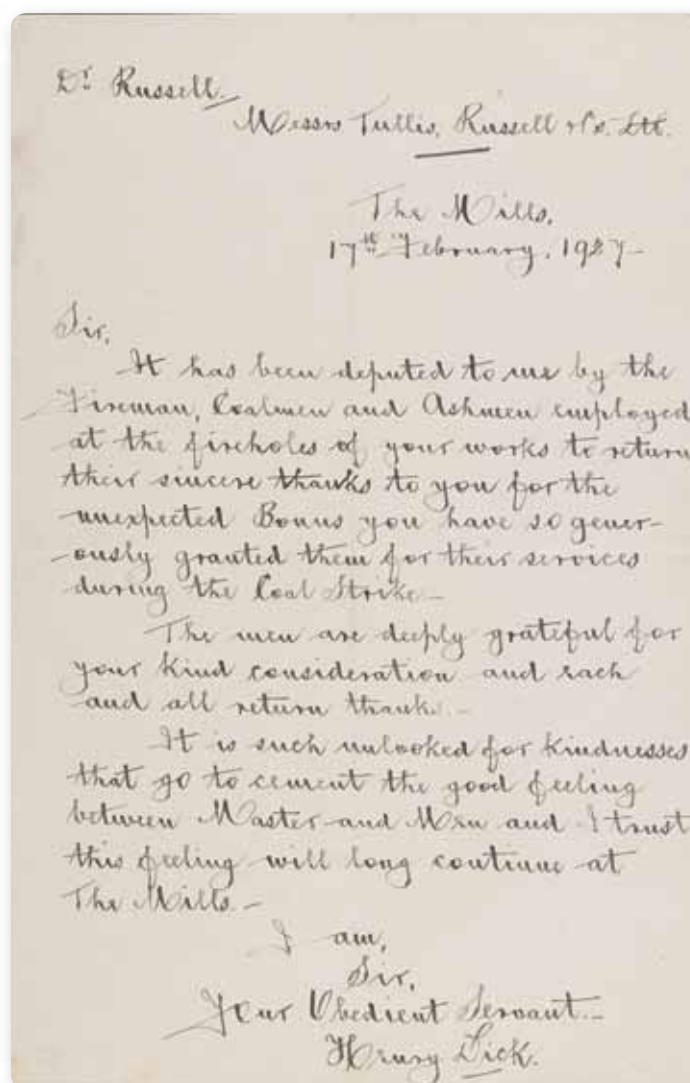 Dr. Russell.
Messrs Tullis, Russell & Co. Ltd.
The Mills,
17th February, 1927
Sir,
It has been deputed to me by the
Fireman, Coalmen and Ashmen employed
at the fireholes of your works to return
their sincere thanks to you for the
unexpected Bonus you have so gener-
ously granted them for their services
during the Coal Strike –
The men are deeply grateful for
your kind consideration and each
and all return thanks. –
It is such unlooked for kindnesses
that go to cement the good feeling
between Master and Men and I trust
this feeling will long continue at
The Mills. –
I am,
Sir,
Your Obedient Servant. –
Henry Dick.